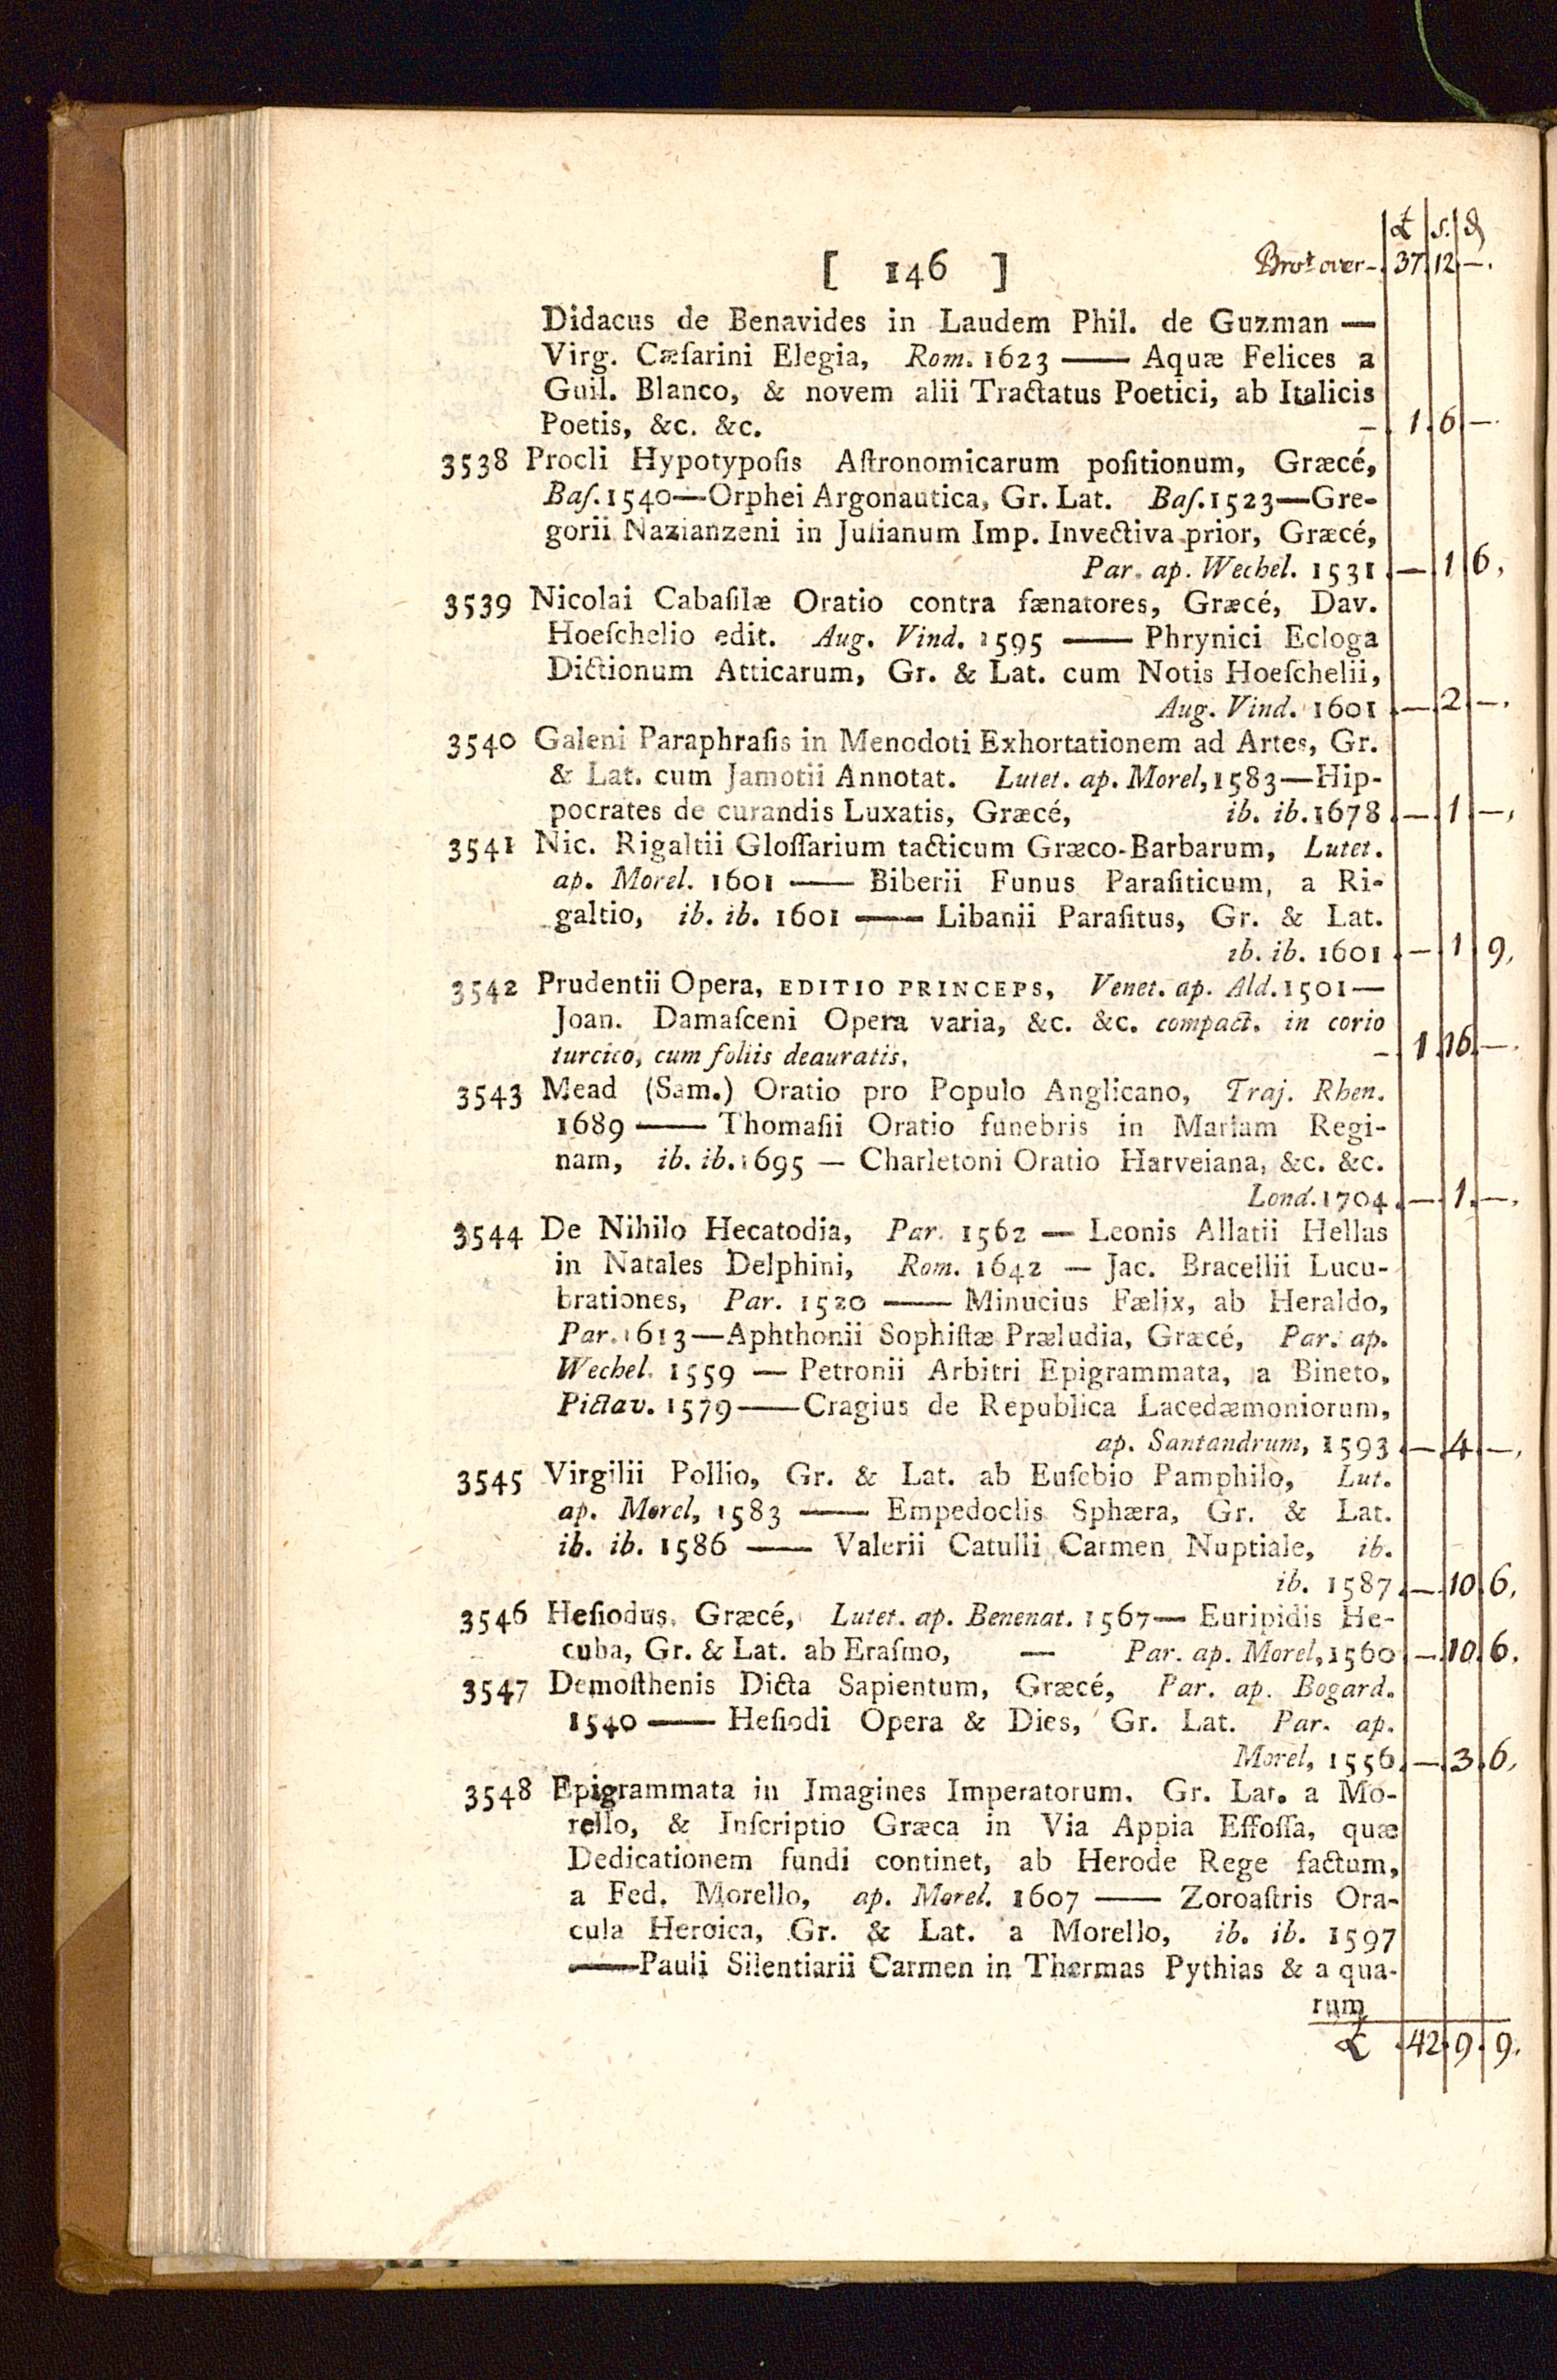 £ s. d
[ 146 ] Brot over - 37. 12. -.
Didacus de Benavides in Laudem Phil. de Guzman —
Virg. Cæſarini Elegia, Rom. 1623 —— Aquæ Felices a
Guil. Blanco, & novem alii Tractatus Poetici, ab Italicis
Poetis, &c. &c. - 1. 6. -.
3538 Procli Hypotypoſis Aſtronomicarum poſitionum, Græcé,
Baſ. 1540—Orphei Argonautica, Gr. Lat. Baſ. 1523—Gre-
gorii Nazianzeni in Julianum Imp. Invectiva prior, Græcé,
Par. ap. Wechel. 1531 . — 1 6,
3539 Nicolai Cabaſilæ Oratio contra fænatores, Græcé, Dav.
Hoeſchelio edit. Aug. Vind. 1595 —— Phrynici Ecloga
Dictionum Atticarum, Gr. & Lat. cum Notis Hoeſchelii,
Aug. Vind. 1601 . — 2. —.
3540 Galeni Paraphraſis in Menodoti Exhortationem ad Artes, Gr.
& Lat. cum Jamotii Annotat. Lutet. ap. Morel, 1583—Hip-
pocrates de curandis Luxatis, Græcé, ib. ib. 1678 . — 1. —,
3541 Nic. Rigaltii Gloſſarium tacticum Græco-Barbarum, Lutet.
ap. Morel. 1601 —— Biberii Funus Paraſiticum, a Ri-
galtio, ib. ib. 1601 —— Libanii Paraſitus, Gr. & Lat.
ib. ib. 1601 . — 1. 9,
3542 Prudentii Opera, EDITIO PRINCEPS, Venet. ap. Ald. 1501—
Joan. Damaſceni Opera varia, &c. &c. compact. in corio
turcico, cum foliis deauratis. - 1. 16. —.
3543 Mead (Sam.) Oratio pro Populo Anglicano, Traj. Rhen.
1689 —— Thomaſii Oratio funebris in Mariam Regi-
nam, ib. ib. 1695 — Charletoni Oratio Harveiana, &c. &c.
Lond. 1704 . — 1. —.
3544 De Nihilo Hecatodia, Par. 1562 — Leonis Allatii Hellas
in Natales Delphini, Rom. 1642 — Jac. Bracellii Lucu-
brationes, Par. 1520 —— Minucius Fælix, ab Heraldo,
Par. 1613—Aphthonii Sophiſtæ Præludia, Græcé, Par. ap.
Wechel. 1559 — Petronii Arbitri Epigrammata, a Bineto,
Pictav. 1579——Cragius de Republica Lacedæmoniorum,
ap. Santandrum, 1593 . — 4. —,
3545 Virgilii Pollio, Gr. & Lat. ab Euſebio Pamphilo, Lut.
ap. Morel, 1583 —— Empedoclis Sphæra, Gr. & Lat.
ib. ib. 1586 —— Valerii Catulli Carmen Nuptiale, ib.
ib. 1587 . — 10. 6,
3546 Heſiodus, Græcé, Lutet. ap. Benenat. 1567— Euripidis He-
cuba, Gr. & Lat. ab Eraſmo, — Par. ap. Morel, 1560 — 10. 6,
3547 Demoſthenis Dicta Sapientum, Græcé, Par. ap. Bogard.
1540 —— Heſiodi Opera & Dies, Gr. Lat. Par. ap.
Morel, 1556 . — 3. 6,
3548 Epigrammata in Imagines Imperatorum. Gr. Lat. a Mo-
rello, & Inſcriptio Græca in Via Appia Effoſſa, quæ
Dedicationem fundi continet, ab Herode Rege factum,
a Fed. Morello, ap. Morel. 1607 —— Zoroaſtris Ora-
cula Heroica, Gr. & Lat. a Morello, ib. ib. 1597
——Pauli Silentiarii Carmen in Thermas Pythias & a qua-
rum
£ . 42. 9. 9.